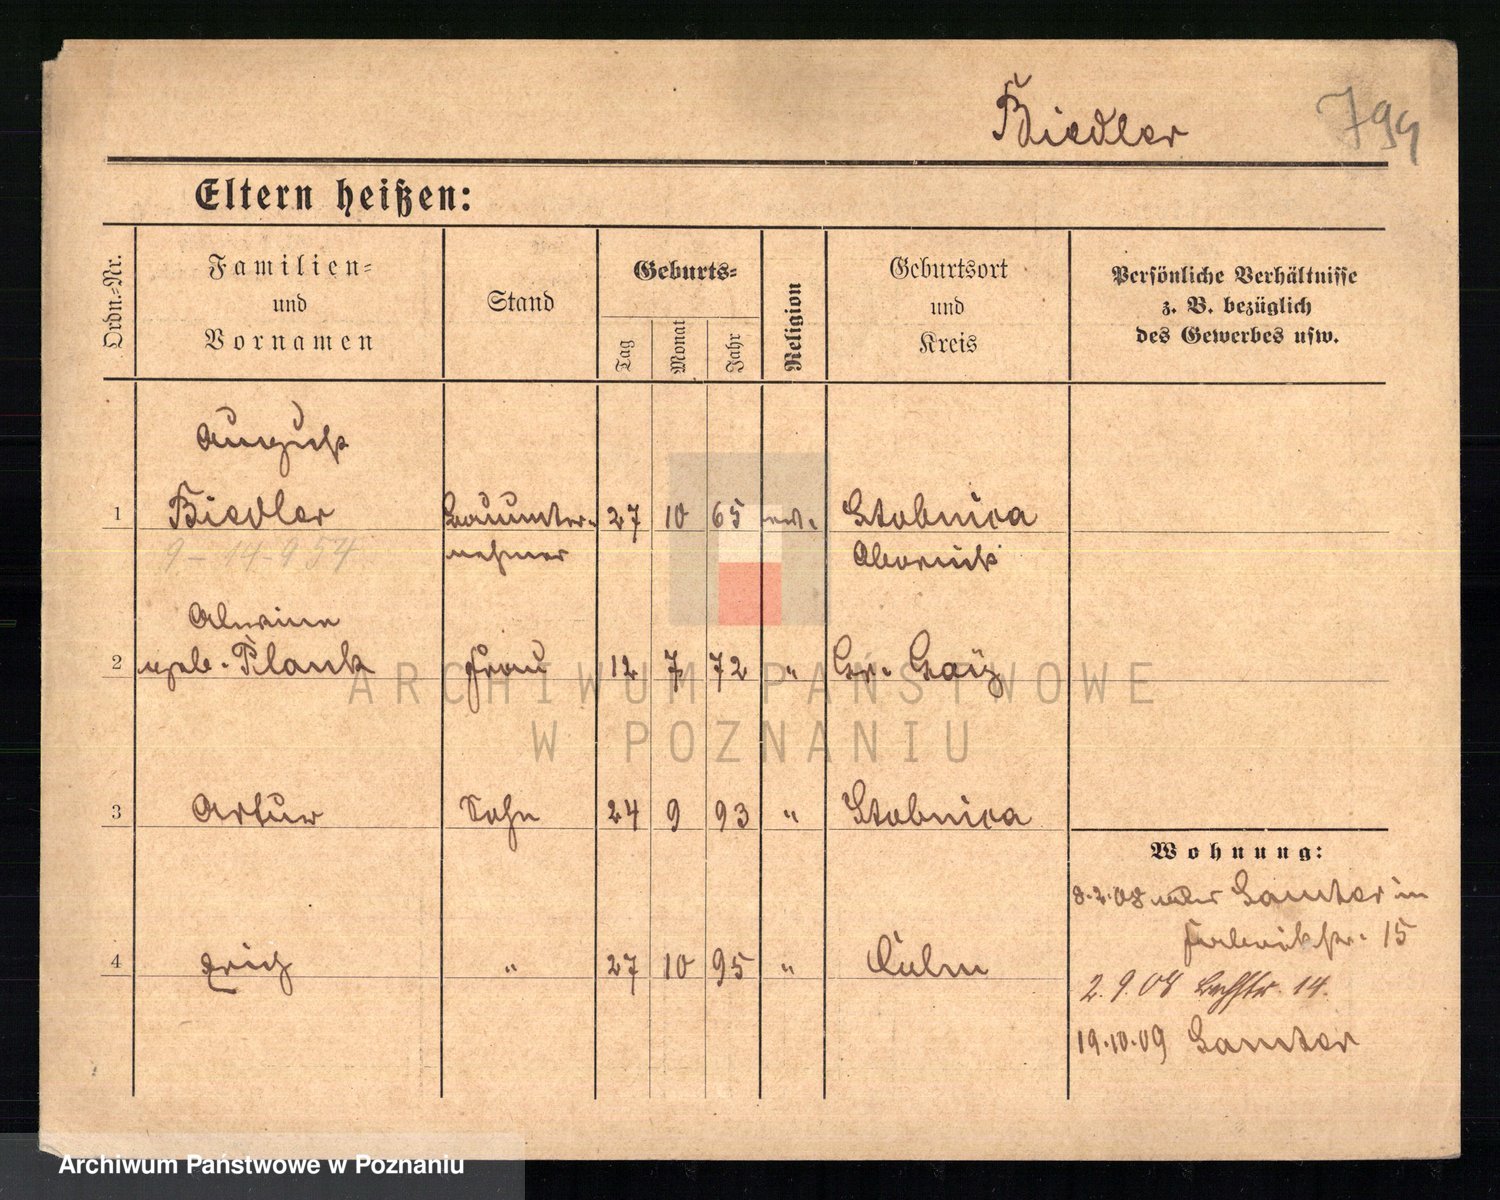 Fiedler 799
Eltern heißen:
Ordn.-Nr.
Familien-
und
Vornamen
Stand
Geburts-
Tag
Monat
Jahr
Religion
Geburtsort
und
Kreis
Persönliche Verhältnisse
z. B. bezüglich
des Gewerbes usw.
August
1 Fiedler Bauunter- 27 10 65 ev. Stobnica
9-14-954 nehmer Obornik
Alwine
2 geb. Plank Frau 12 7 72 " Gr. Gay
3 Artur Sohn 24 9 93 " Stobnica
Wohnung:
8.2.08 Samter in
15
4 Erich " 27 10 95 " Culm
2.9.08 Bachstr. 14.
19.10.09 Samter
ARCHIWUM PAŃSTWOWE
W POZNANIU
Archiwum Państwowe w Poznaniu